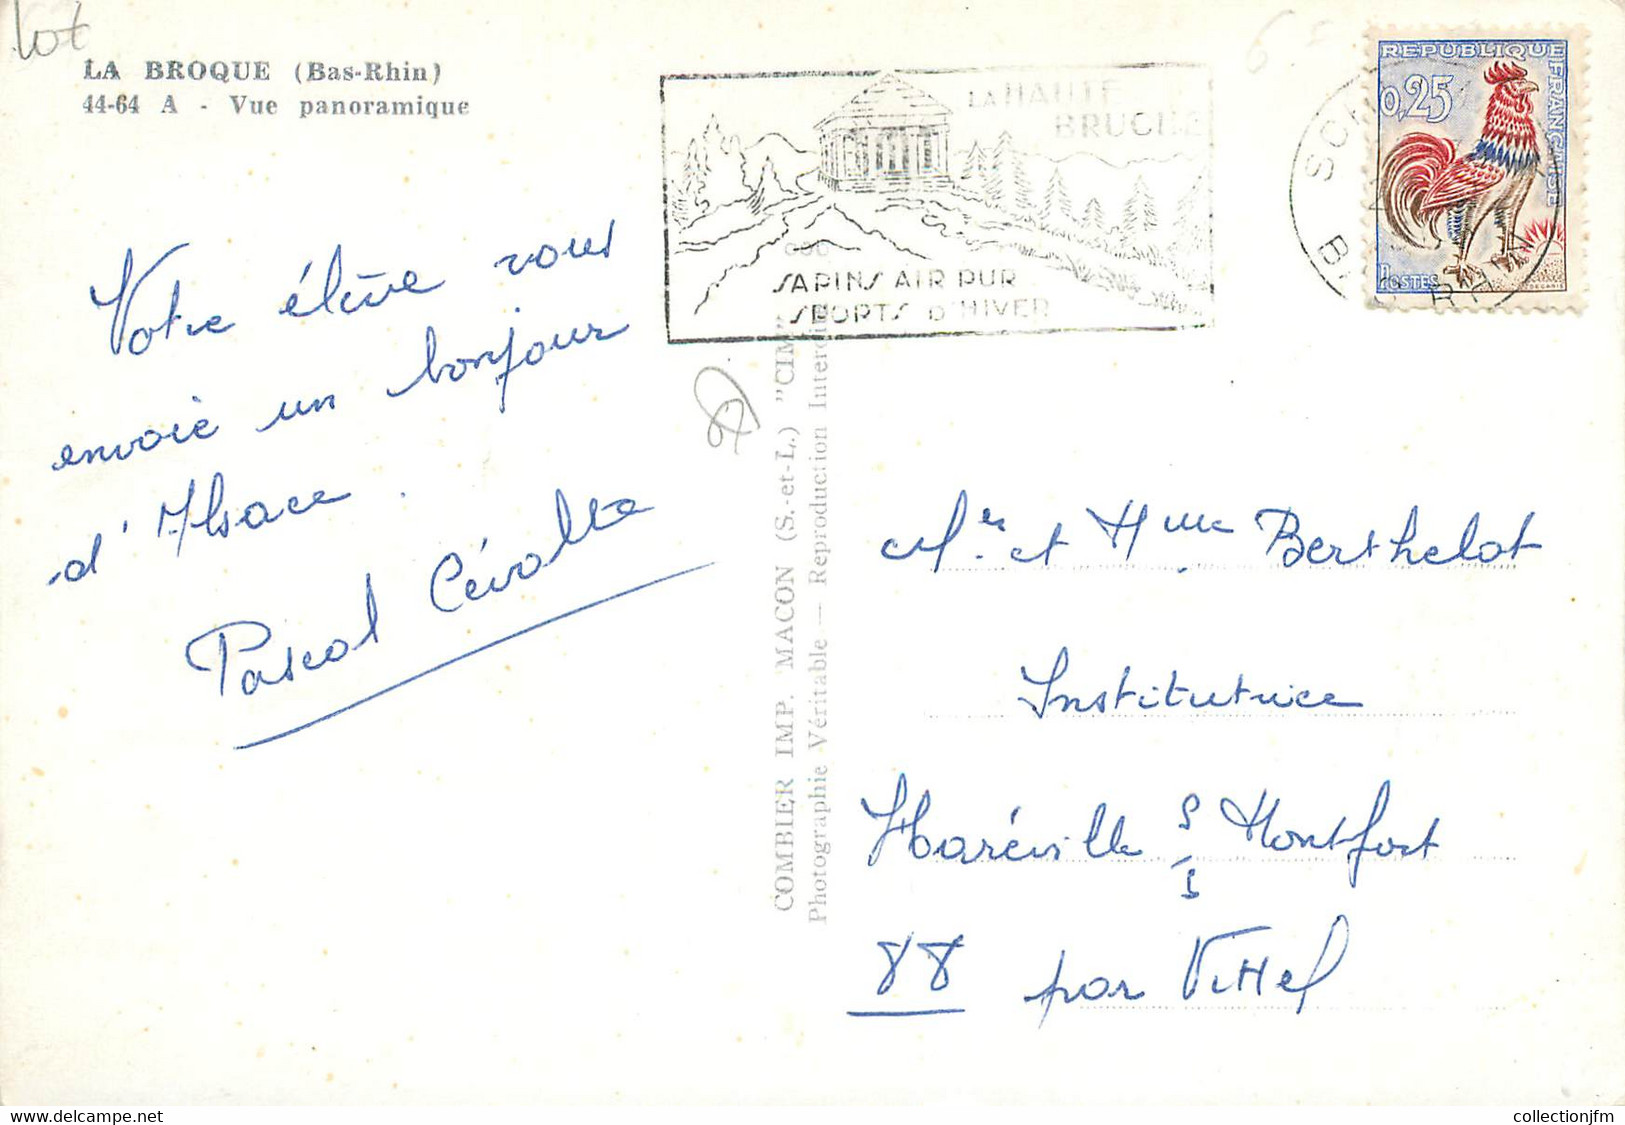 lot
LA BROQUE (Bas-Rhin)
44-64 A - Vue panoramique
LA HAUTE
BRUCHE
SAPINS AIR PUR
SPORTS D'HIVER
REPUBLIQUE FRANÇAISE
0,25
POSTES
DECARIS
SCH
BAS RHIN
Votre élève vous
envoie un bonjour
d'Alsace.
Pascal
COMBIER IMP. MACON (S.-et-L.) "CIM"
Photographie Véritable — Reproduction Interdite
Mr et Mme Berthelot
Institutrice
Haréville s/s Montfort
88 par Vittel
collectionjfm